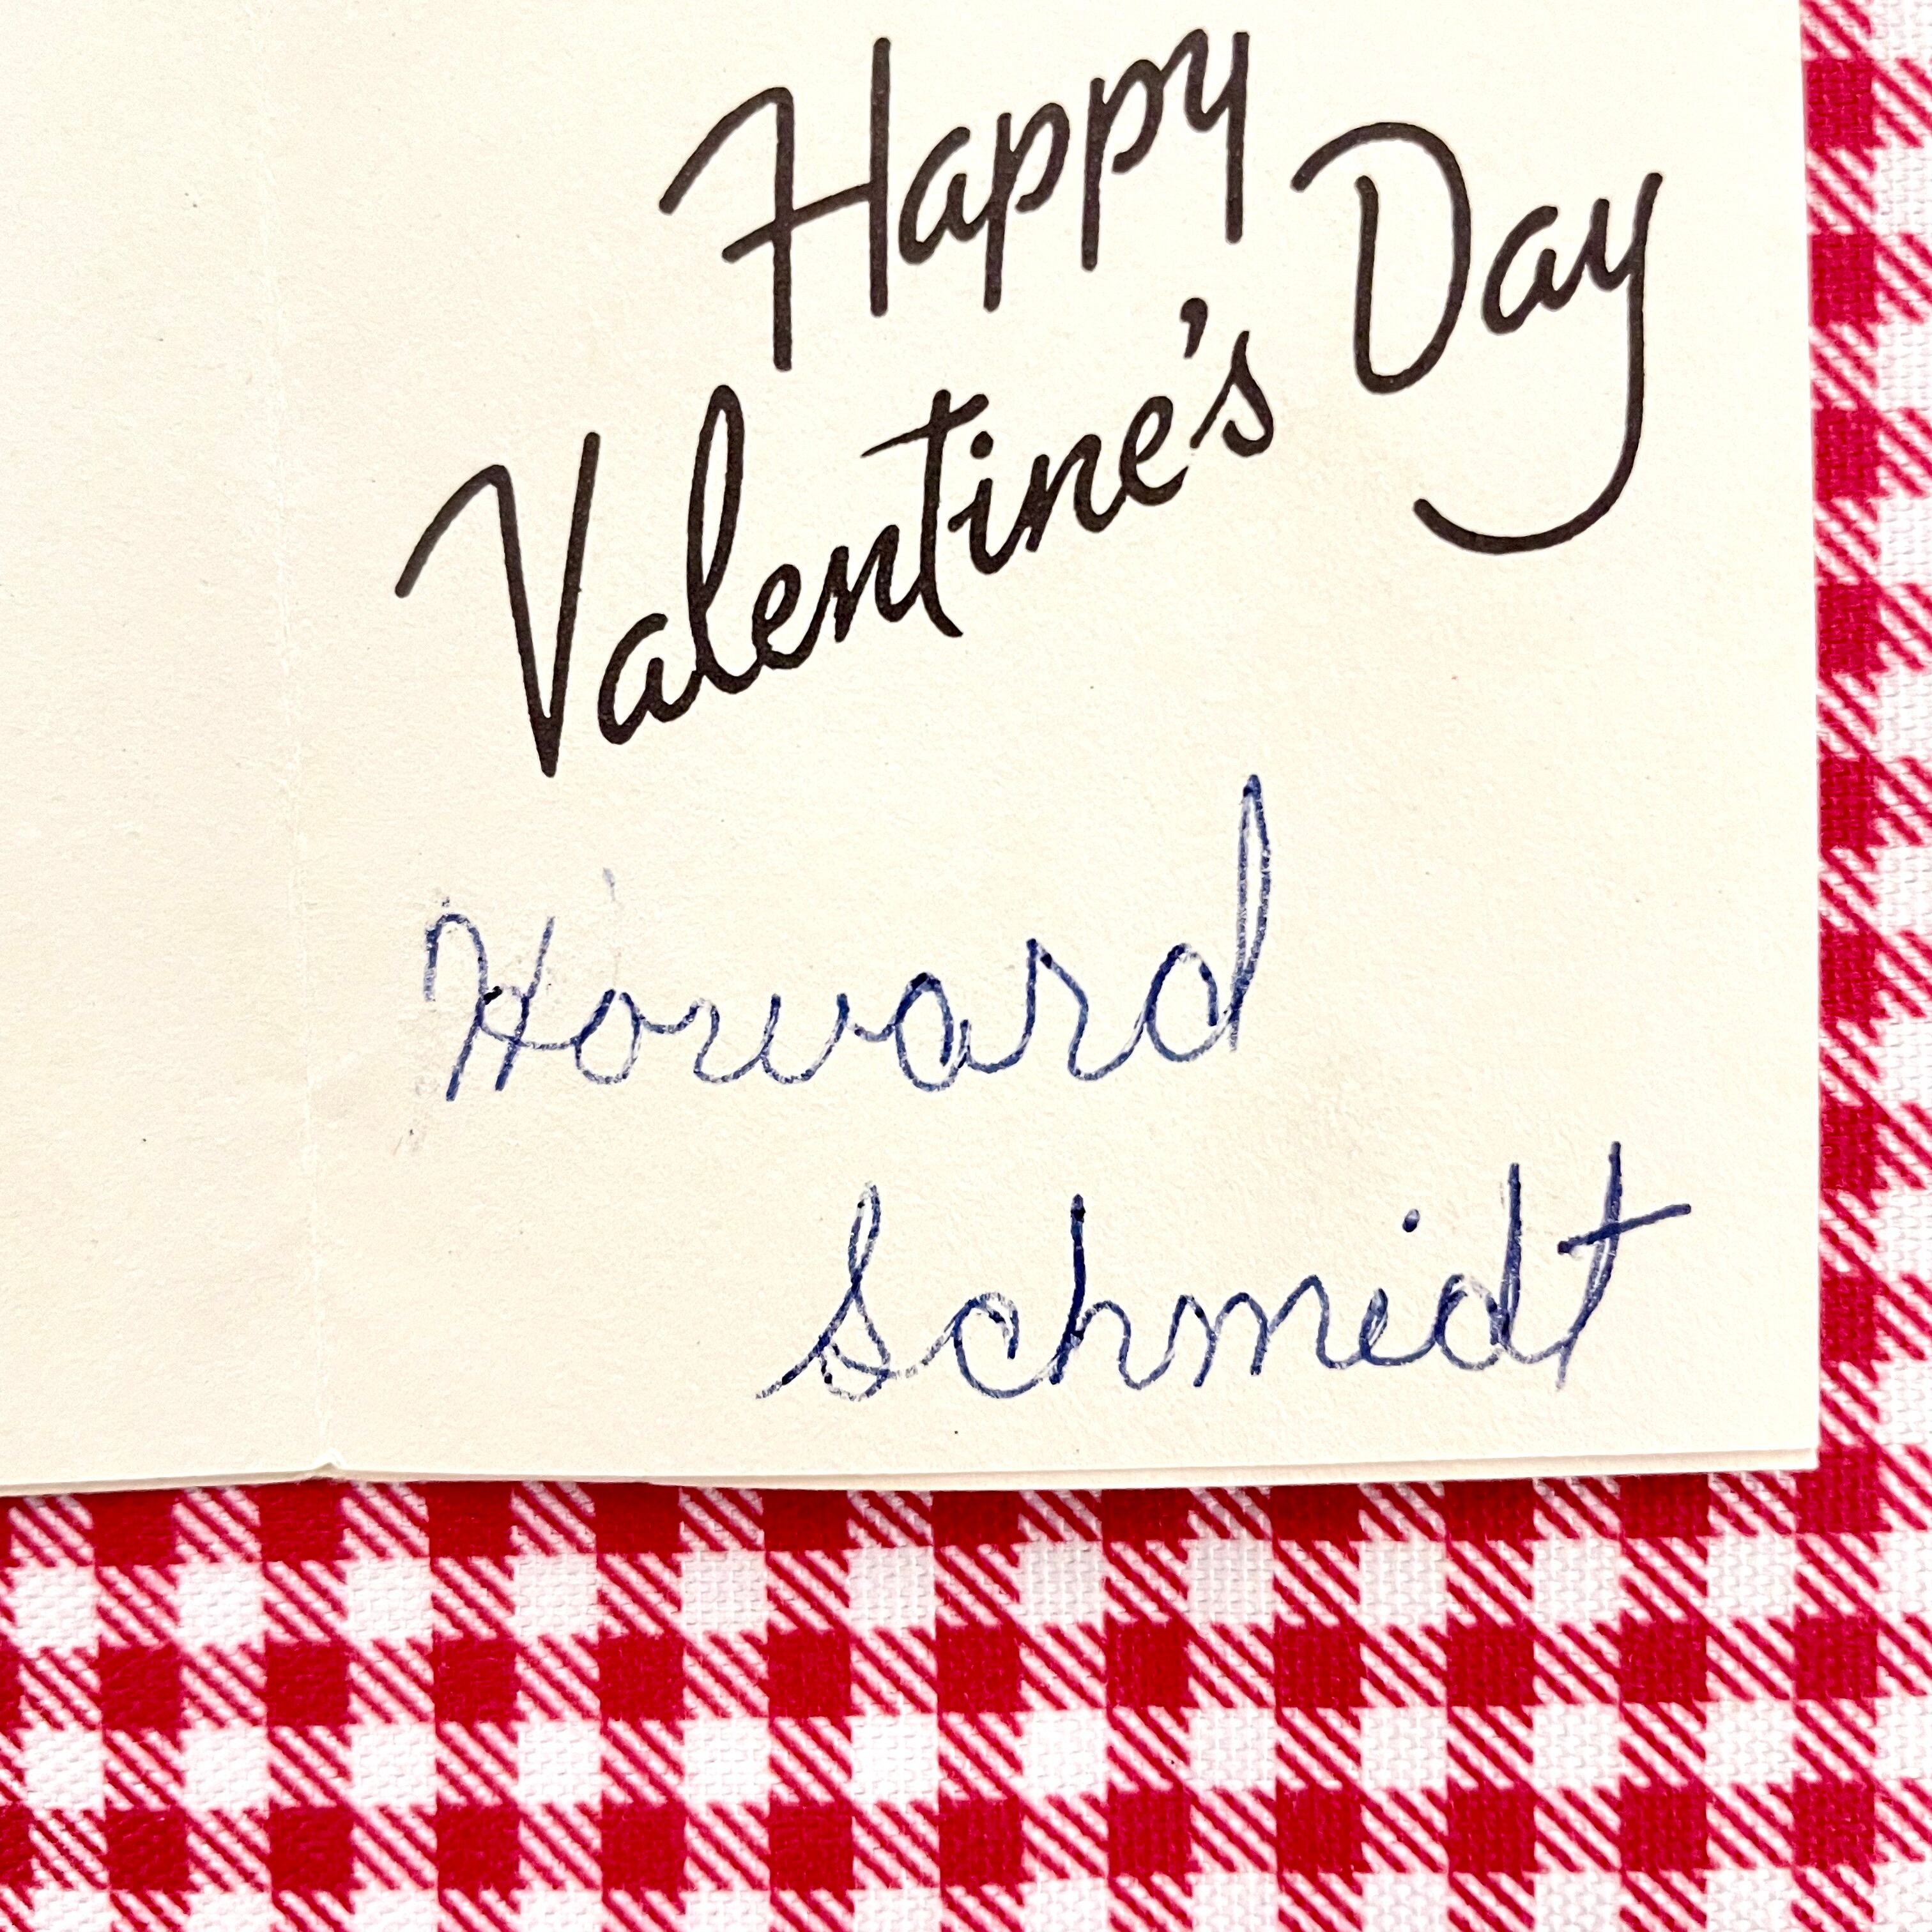 Happy
Valentine's Day
Howard
Schmidt